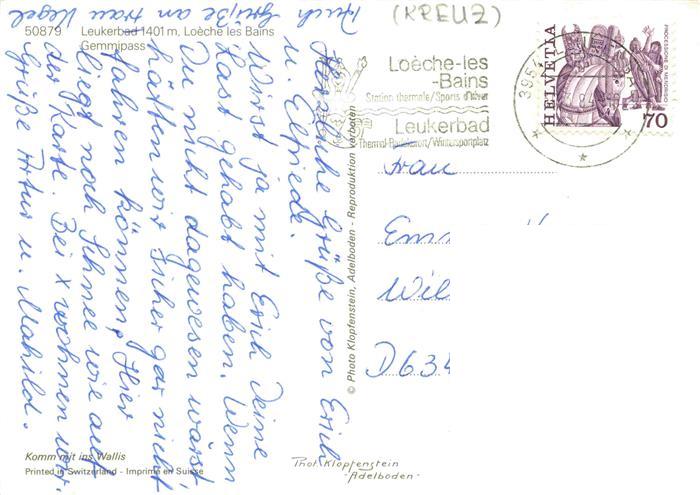 Auch Grüße an Frau Kegel
(KREUZ)
50879
Leukerbad 1401 m, Loèche les Bains
Gemmipass
Herzliche Grüße von Erich
u. Elfriede.
Wirst ja mit Erich Deine
Last gehabt haben. Wenn
Du nicht dagewesen wärst,
hätten wir sicher gar nicht
fahren können. Hier
liegt noch Schnee wie auf
der Karte. Bei x wohnen wir.
Grüße Artur u. Mahild.
Komm mit ins Wallis
Printed in Switzerland - Imprimé en Suisse
© Photo Klopfenstein, Adelboden - Reproduktion verboten
Loèche-les
-Bains
Station thermale/Sports d'hiver
Leukerbad
Thermal-Badekurort/Wintersportplatz
395
HELVETIA
PROCESSIONE DI MENDRISIO
70
Frau
Em
Wil
D634
Phot. Klopfenstein
-Adelboden-